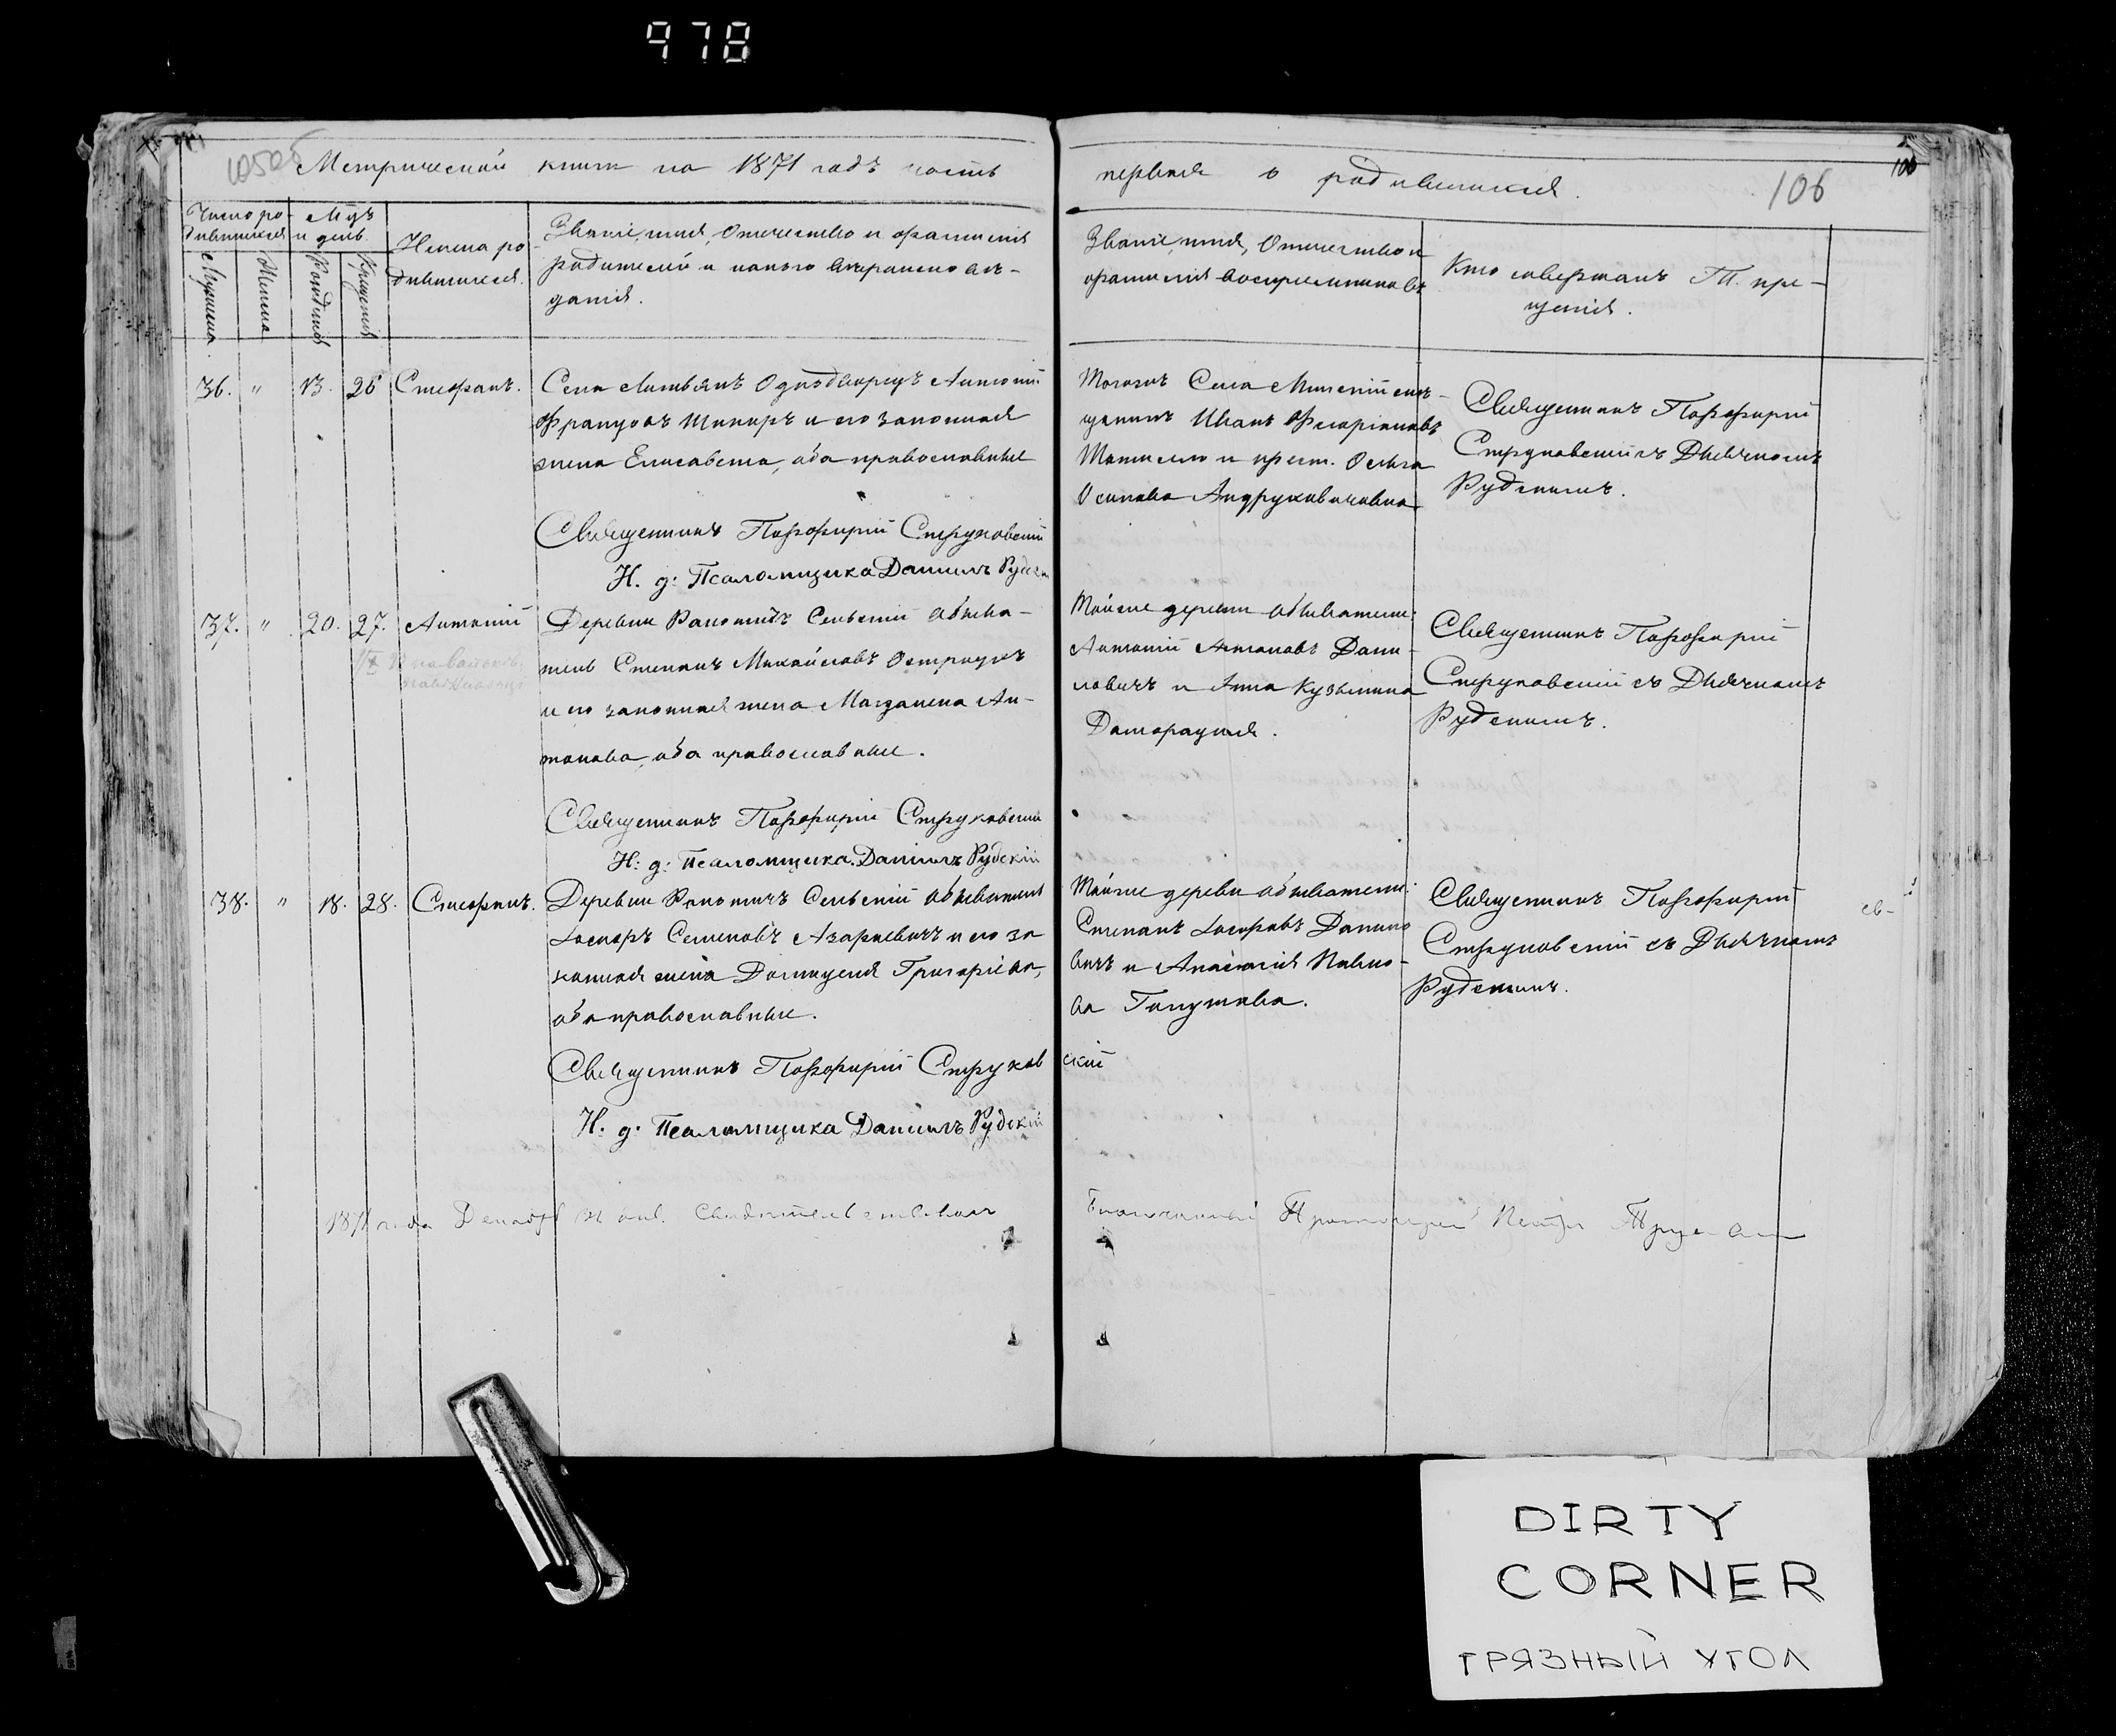 978
Метрической книги на 1871 годъ часть
первая о родившихся.
106
106
Число ро-
дившихся
Мужеска
Женска
Мцъ
и день.
Рожденія
Крещенія
Имена ро-
дившихся.
Званіе, имя, Отчество и фамилія
родителей и какого вѣроисповѣ-
данія.
Званіе, имя, Отчество и
фамилія воспріемниковъ
Кто совершалъ Т. кре-
щенія.
36. " 13. 26 Стефанъ.
Села Однодворецъ Антоній
и его законная
жена Елисавета, оба православные
Священникъ Порфирій Струковскій
И. д: Псаломщика Даніилъ Рудскій
Тогожъ Села
Иванъ Флоріановъ
и крест. Ольга
Осипова
Священникъ Порфирій
Струковскій съ Дьячкомъ
Рудскимъ.
37. " 20. 27. Антоній
Деревни Сельскій обыва-
тель Степанъ Михайловъ
и его законная жена Магдалена Ан-
тонова, оба православные.
Священникъ Порфирій Струковскій
И: д: Псаломщика Даніилъ Рудскій
Тойже деревни обыватели:
Антоній Антоновъ Дани-
ловичъ и Анна Кузьмина
Священникъ Порфирій
Струковскій съ Дьячкомъ
Рудскимъ.
38. " 18. 28. Стефанъ.
Деревни Сельскій обыватель
Семеновъ Азаркевичъ и его за
конная жена Домицеля Григорьева,
оба православные.
Священникъ Порфирій Струков
скій
И: д: Псаломщика Даніилъ Рудскій
Тойже деревни обыватели:
Степанъ Данило
вичъ и Анастасія Павло-
ва
Священникъ Порфирій
Струковскій съ Дьячкомъ
Рудскимъ.
1871 года Декабря 31 дня. Свидѣтельствовалъ
Благочинный Протоіерей
DIRTY
CORNER
ГРЯЗНЫЙ УГОЛ